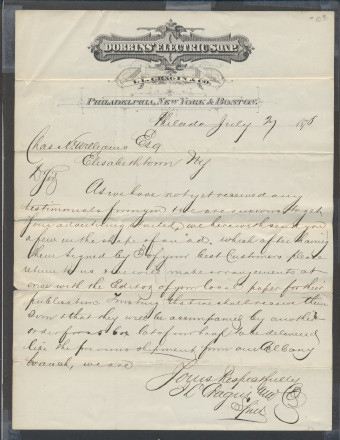 DOBBINS' ELECTRIC SOAP.
I. L. CRAGIN & CO.
PHILADELPHIA, NEW YORK & BOSTON.
Philada July 27 187
Chas N. Williams Esq
Elizabethtown NY
D Sir
As we have not yet received any
testimonials from you & we are anxious to get
your advertising started, we herewith send you
a few in the shape of an ad, which after having
them signed by 5 or 6 of your best Customers please
return to us & we will make arrangements at
once with the Editor of your local paper for their
publication. Trusting that we shall receive them
soon & that they will be accompanied by another
order for a lot of our Soap to be delivered
like the previous shipment from our Albany
branch, we are
Yours Respectfully
I L Cragin & Co